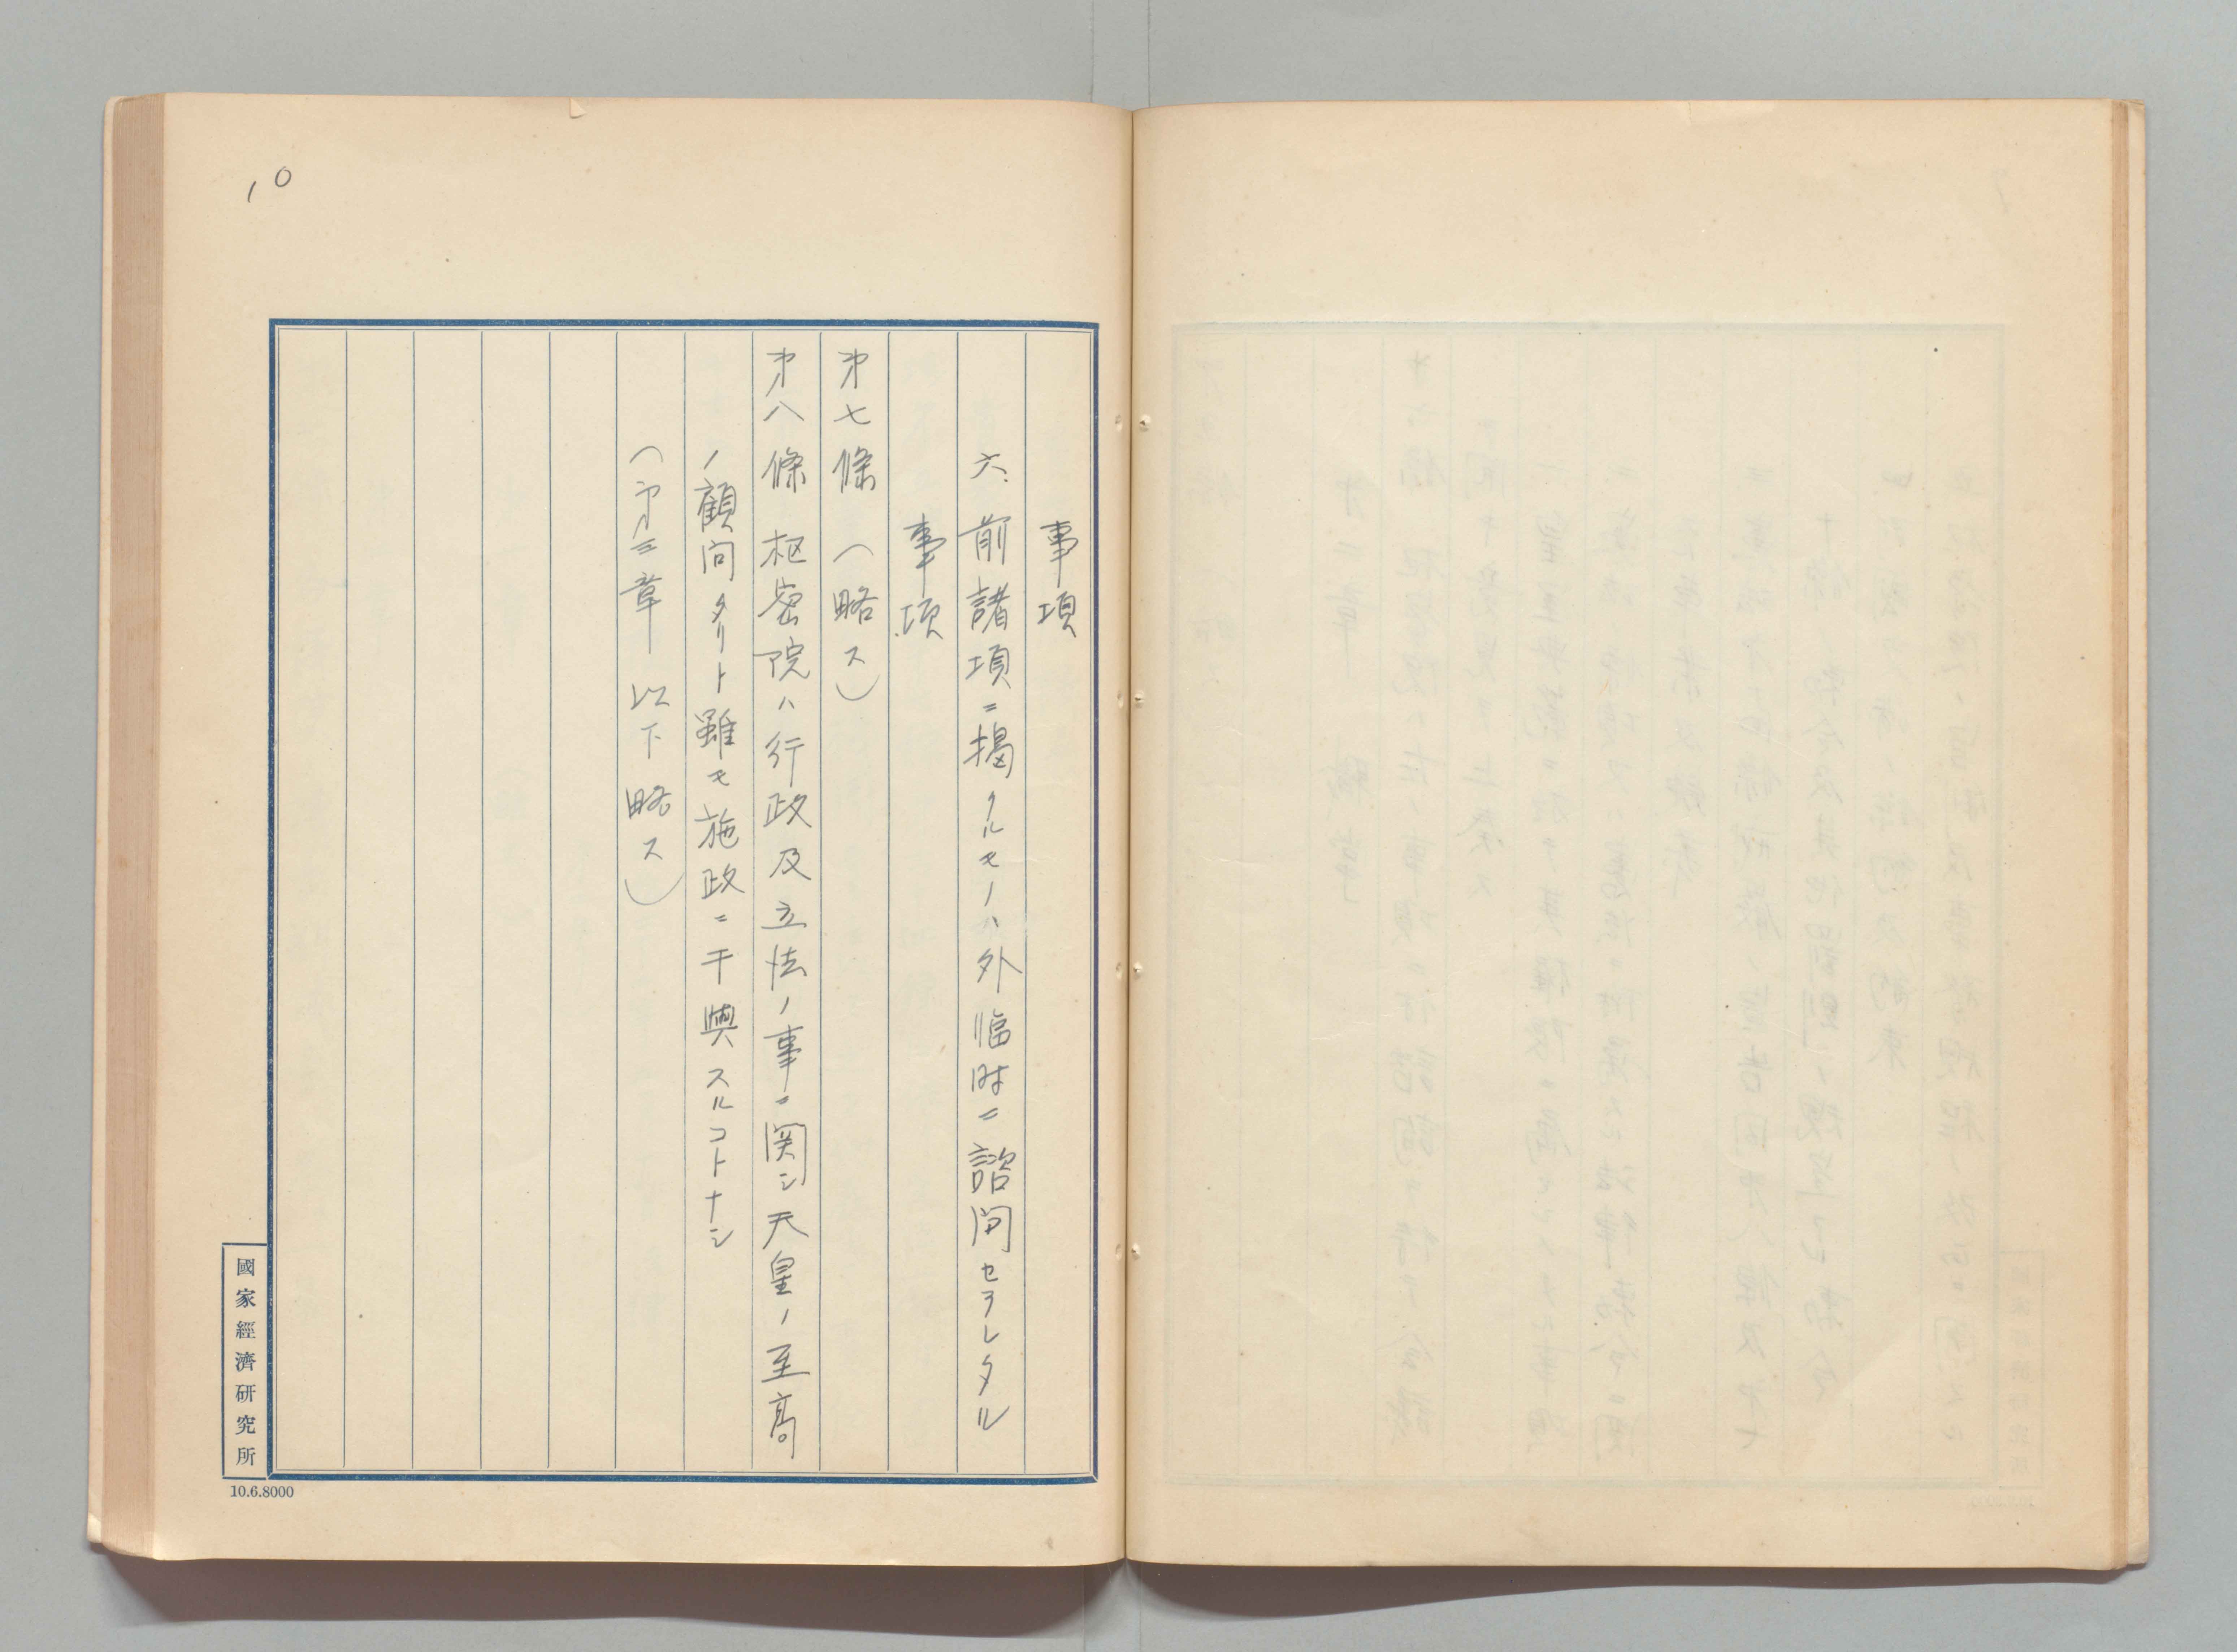 10
事項
六、前諸項ニ掲クルモノハ外臨時ニ諮問セラレタル
事項
第七條（略ス）
第八條 枢密院ハ行政及立法ノ事ニ関シ天皇ノ至高
ノ顧問タリト雖モ施政ニ干與スルコトナシ
（第三章 以下略ス）
國家經濟研究所
10.6.8000